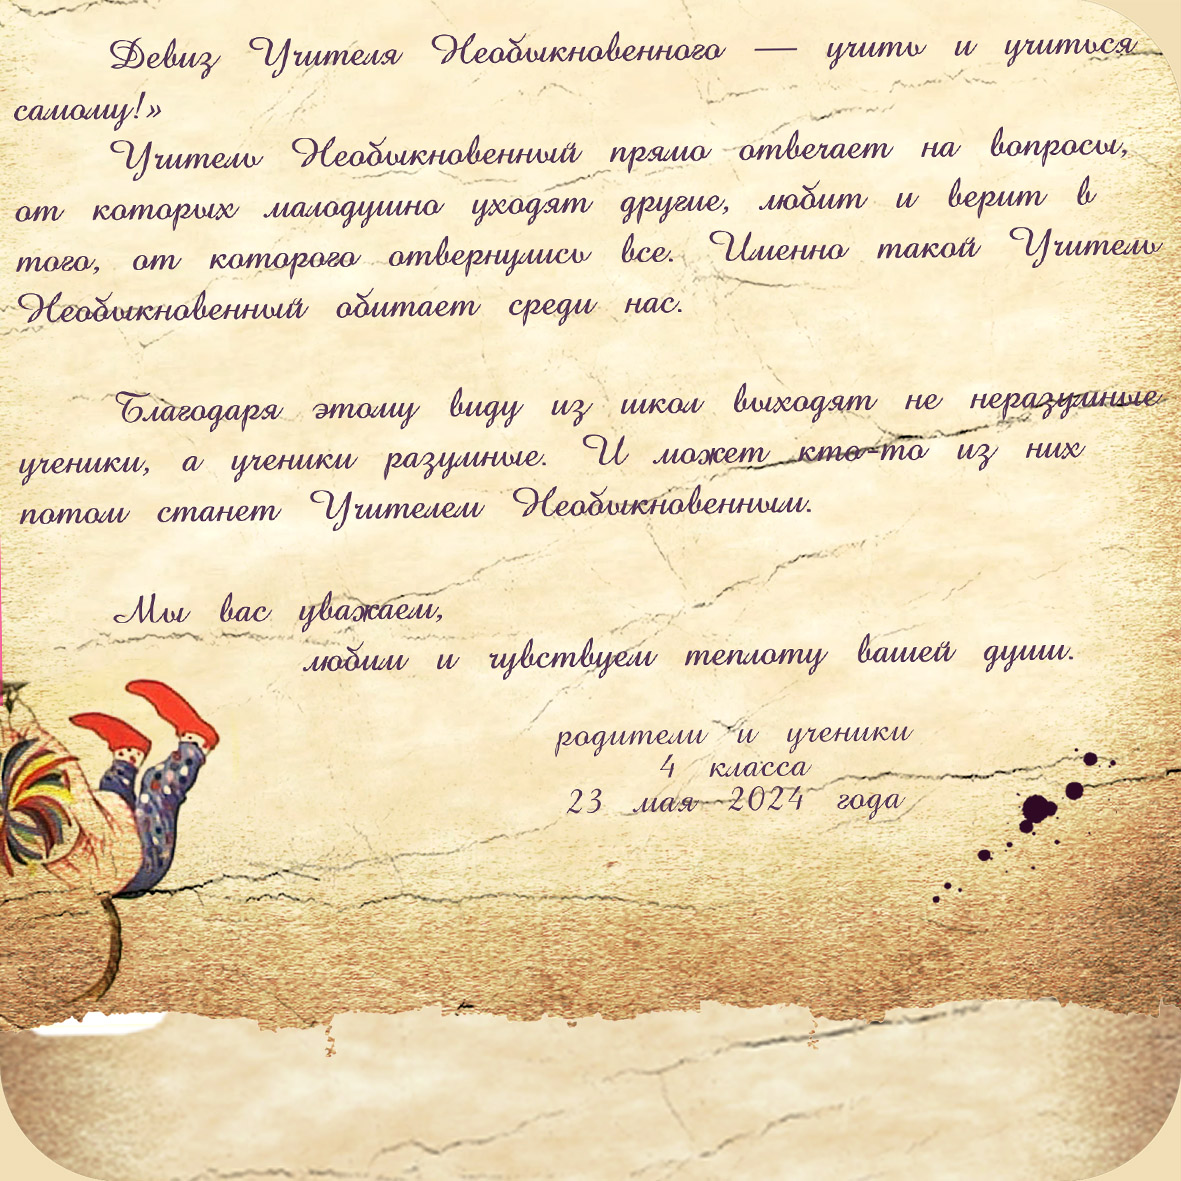 Девиз Учителя Необыкновенного — учить и учиться
самому!»
Учитель Необыкновенный прямо отвечает на вопросы,
от которых малодушно уходят другие, любит и верит в
того, от которого отвернулись все. Именно такой Учитель
Необыкновенный обитает среди нас.
Благодаря этому виду из школ выходят не неразумные
ученики, а ученики разумные. И может кто-то из них
потом станет Учителем Необыкновенным.
Мы вас уважаем,
любим и чувствуем теплоту вашей души.
родители и ученики
4 класса
23 мая 2024 года